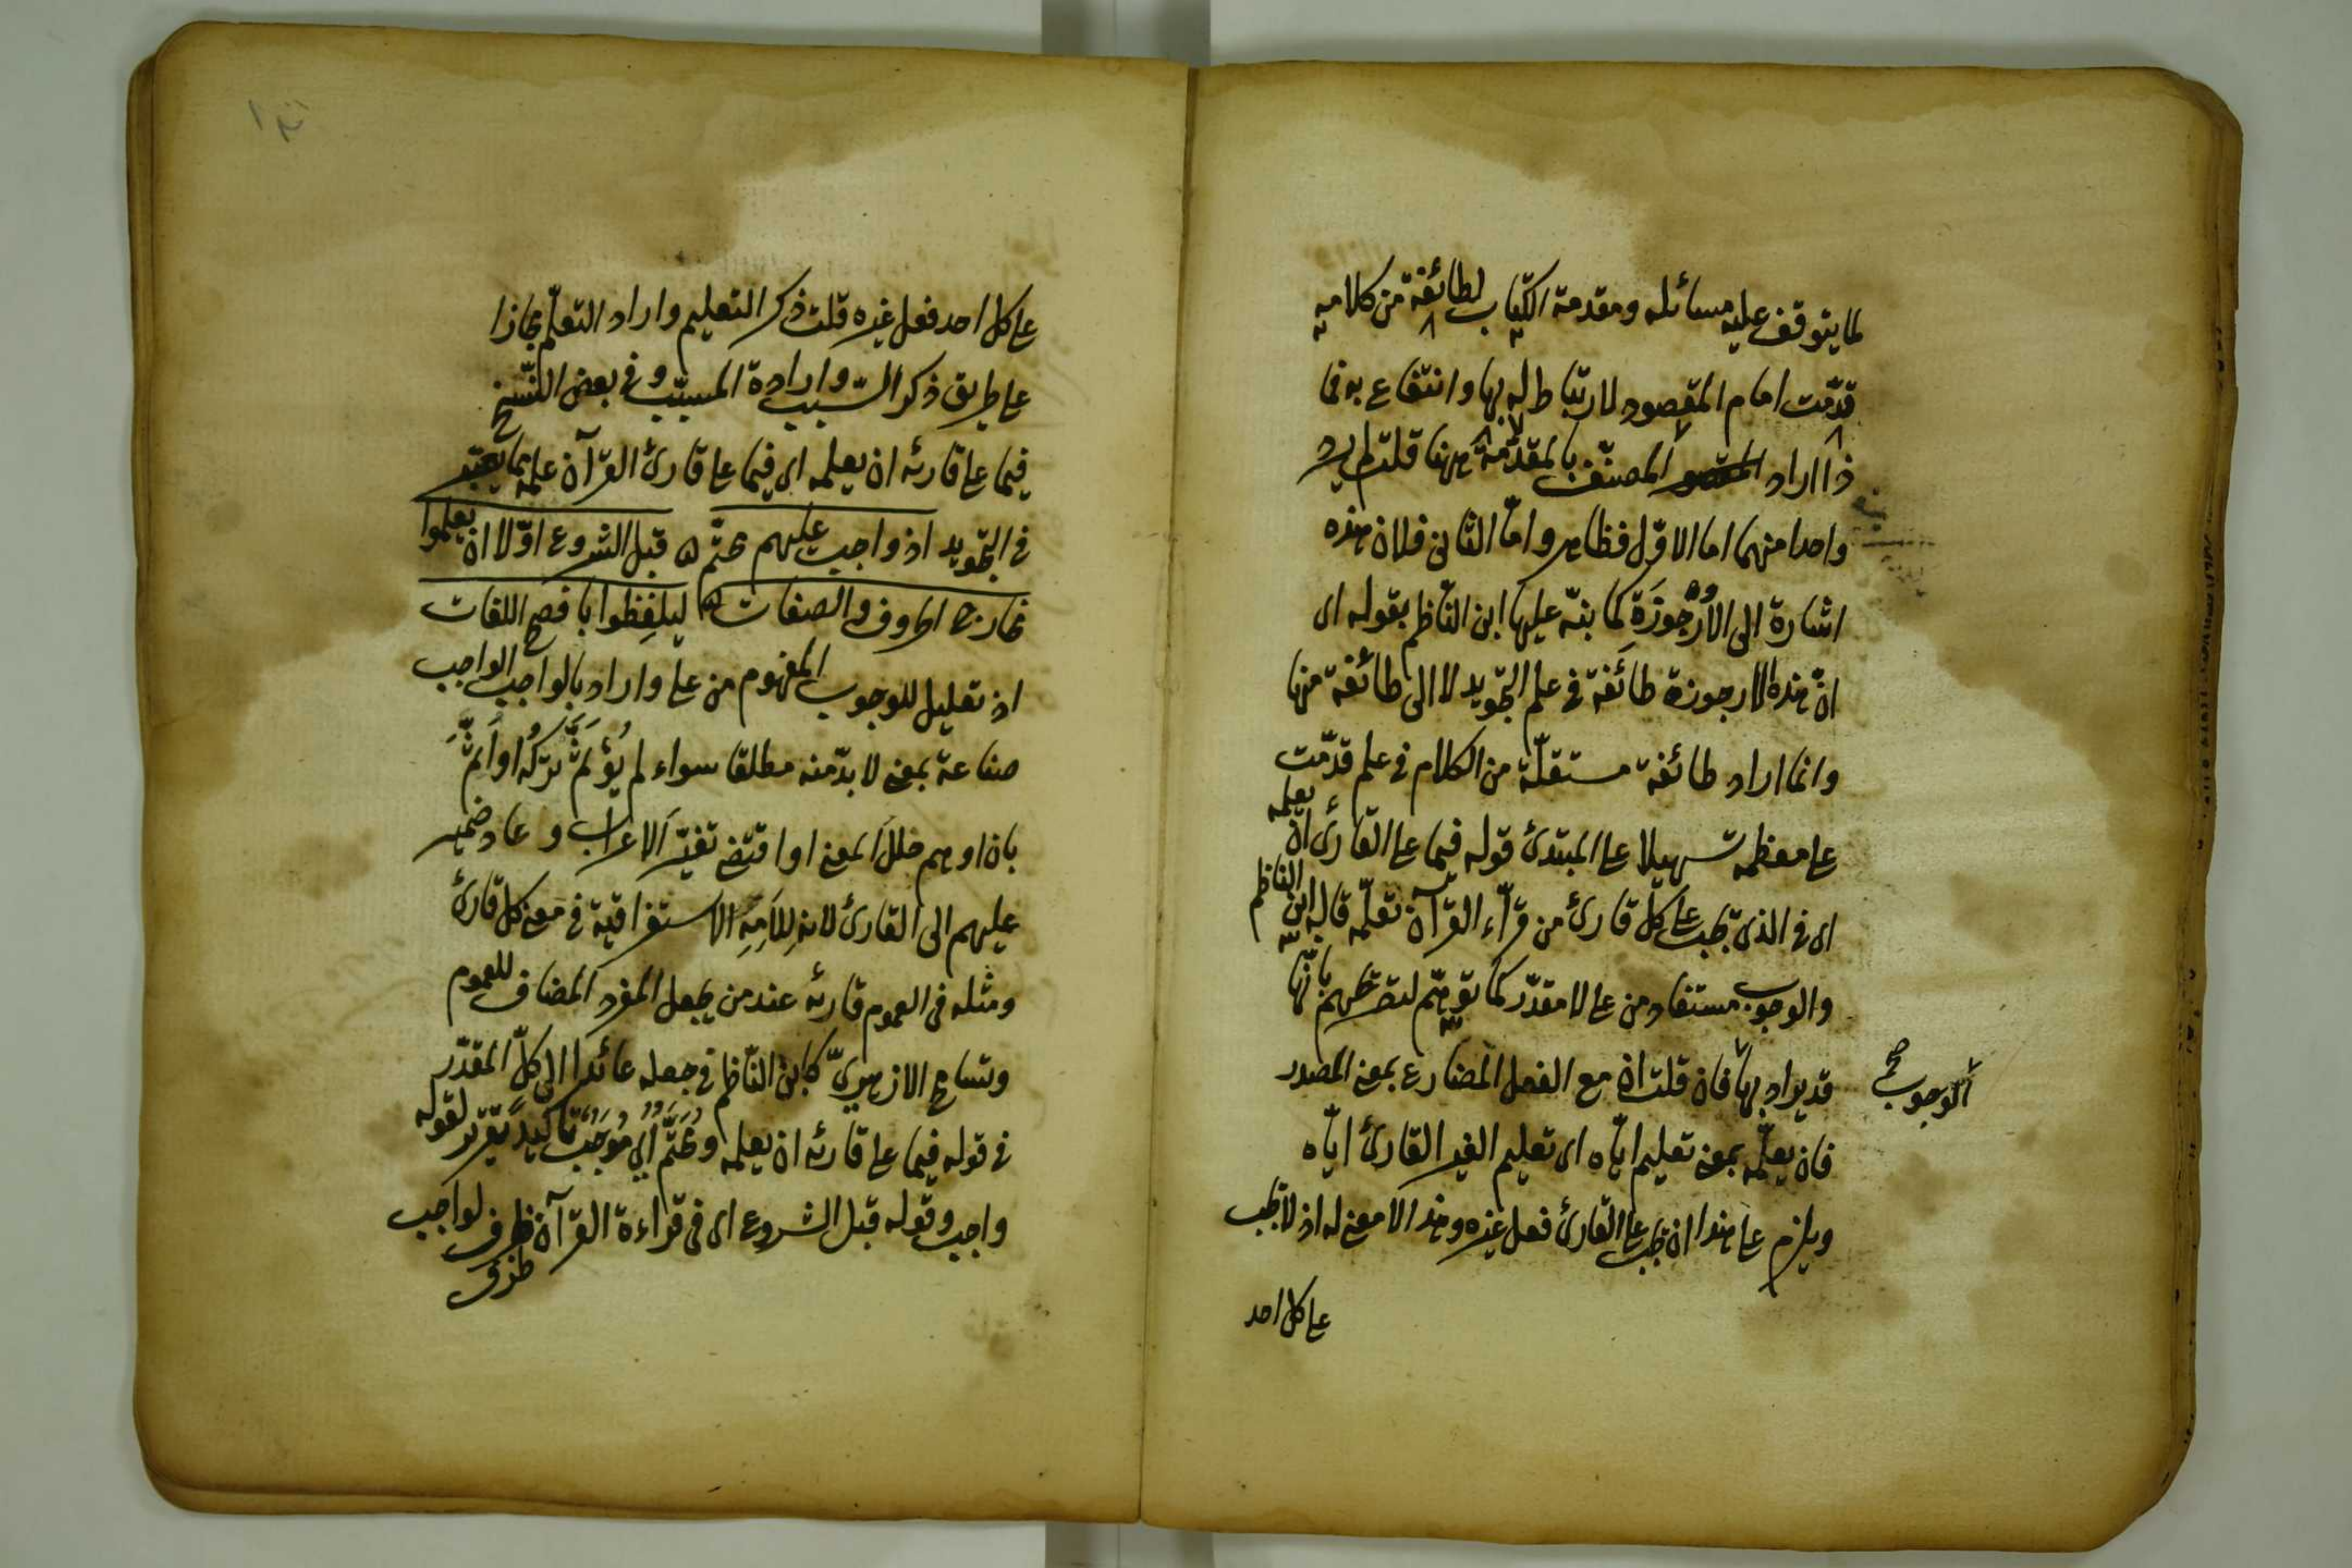 لما يتوقف عليه مسائله ومقدمة الكتاب لطائفة من كلامه
قدّمت امام المقصود لارتباط له بها وانتفاع بها فما
ذا اراد المصنّف بالمقدّمة ههنا قلت لم يرد
واحدا منهما اما الاوّل فظاهر وامّا الثانى فلان هذه
اشارة الى الاُرْجُوزَة كما نبّه عليها ابن النّاظم بقوله اى
انّ هذه الارجوزة طائفة فى علم التجويد لا الى طائفة منها
وانما اراد طائفة مستقلّة من الكلام فى علم قدّمت
على معظمه تسهيلا على المبتدئ قوله فيما على القارئ ان يعلمه
اى فى الذى يجب على كل قارئ من قرّاء القرآن تعلّمه قاله ابن الناظم
والوجوب مستفاد من على لا مقدّر كما توهّم لتصريحهم بانّها
قد يراد بها فان قلت ان مع الفعل المضارع بمعنى المصدر
الوجوب صح
فان يعلّمه بمعنى تعليم ايّاه اى تعليم الغير القارئ ايّاه
ويلزم على هذا ان يجب على القارئ فعل غيره وهذا لا معنى له اذ لا يجب
على كل احد
على كل احد فعل غيره قلت ذكر التعليم واراد التعلّم مجازا
على طريق ذكر السّبب وارادة المسبّب وفى بعض النّسخ
فيما على قارئه ان يعلمه اى فيما على قارئ القرآن علمه مما يعتبر
فى التجويد اذ واجب عليهم محتّم قبل الشروع اوّلا ان يعلموا
مخارج الحروف والصفات ليلفظوا بافصح اللغات
اذ تعليل للوجوب المفهوم من على واراد بالواجب الواجب
صناعة بمعنى لا بدّ منه مطلقا سواء لم يُؤَثَّم تركُه او اَثِمَ
بان اوهم خلل المعنى او اقتضى تغيّر الاعراب وعاد ضمير
عليهم الى القارئ لانه لِلَامِهِ الاستغراقية فى معنى كل قارئ
ومثله فى العموم قارئه عند من يجعل المفرد المضاف للعموم
وتسامح الازهرىّ كابن النّاظم فى جعله عائدا الى كلّ المقدّر
فى قوله فيما على قارئه ان يعلمه ومُحَتَّمٌ اى مُوجَبٌ تاكيد تقرير لقوله
واجب وقوله قبل الشروع اى فى قراءة القرآن ظرف لواجب
ظرف